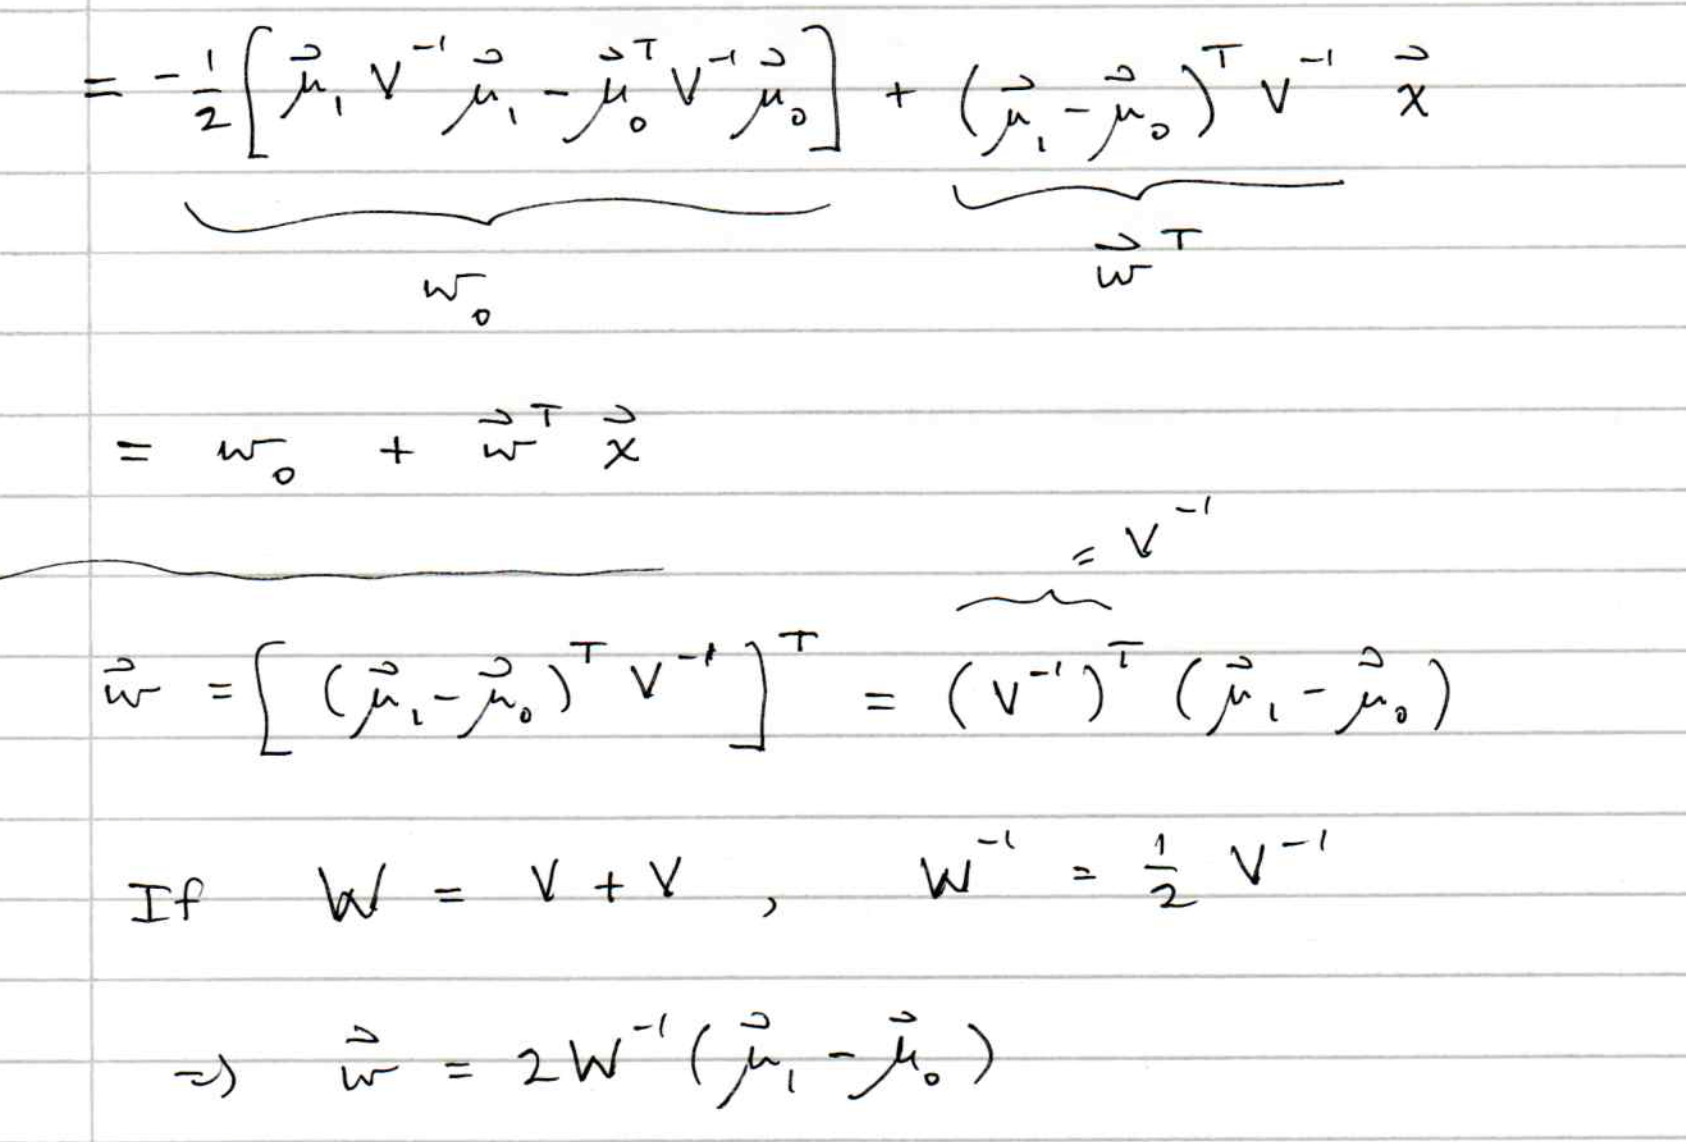 = -1/2 [ μ⃗₁ V⁻¹ μ⃗₁ - μ⃗₀ᵀ V⁻¹ μ⃗₀ ] + (μ⃗₁ - μ⃗₀)ᵀ V⁻¹ x⃗
w₀ w⃗ᵀ
= w₀ + w⃗ᵀ x⃗
= V⁻¹
w⃗ = [ (μ⃗₁ - μ⃗₀)ᵀ V⁻¹ ]ᵀ = (V⁻¹)ᵀ (μ⃗₁ - μ⃗₀)
If W = V + V , W⁻¹ = 1/2 V⁻¹
⇒ w⃗ = 2W⁻¹ (μ⃗₁ - μ⃗₀)